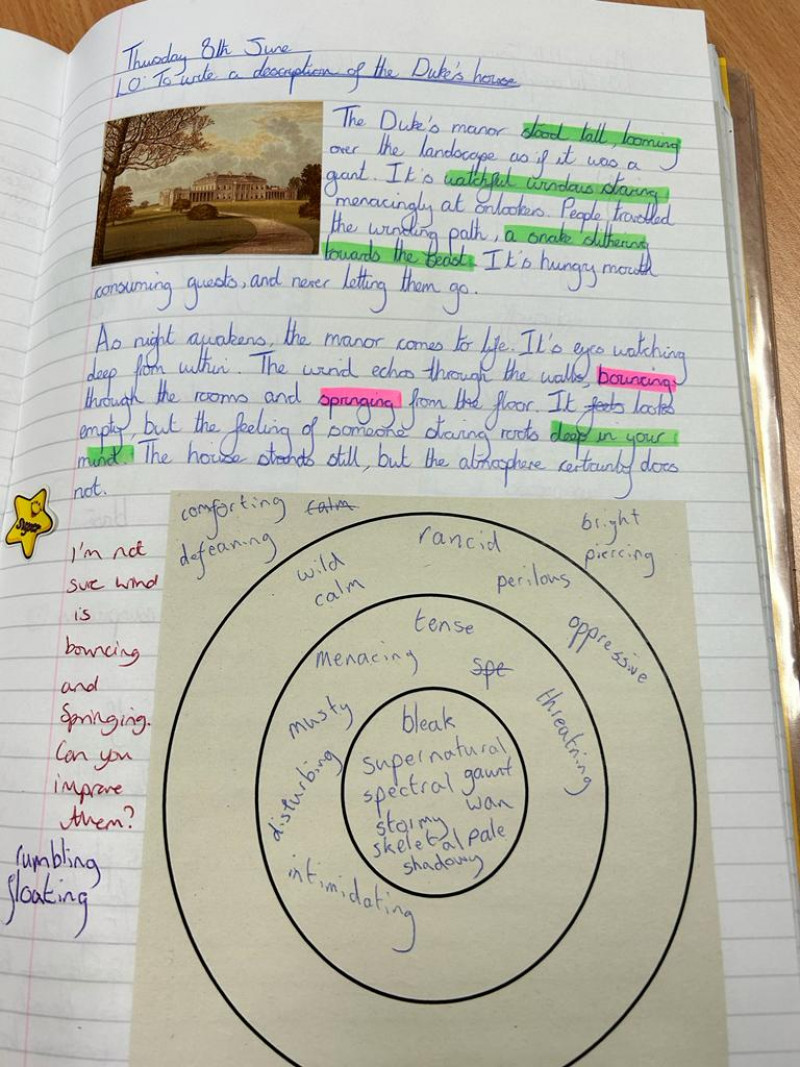 Thursday 8th June
LO: To write a description of the Duke's house
The Duke's manor stood tall, looming
over the landscape as if it was a
giant. It's watchful windows staring
menacingly at onlookers. People travelled
the winding path, a snake slithering
towards the beast. It's hungry mouth
consuming guests, and never letting them go.
As night awakens, the manor comes to life. It's eyes watching
deep from within. The wind echos through the walls, bouncing
through the rooms and springing from the floor. It feels looks
empty, but the feeling of someone staring roots deep in your
mind. The house stands still, but the atmosphere certainly does
not.
super
I'm not
sure wind
is
bouncing
and
springing.
Can you
improve
them?
rumbling
floating
comforting calm
defeaning
bright
piercing
rancid
wild
calm
perilous
oppressive
tense
menacing
spe
musty
threatning
disturbing
intimidating
bleak
supernatural
spectral gaunt
wan
stormy
skeletal pale
shadowy